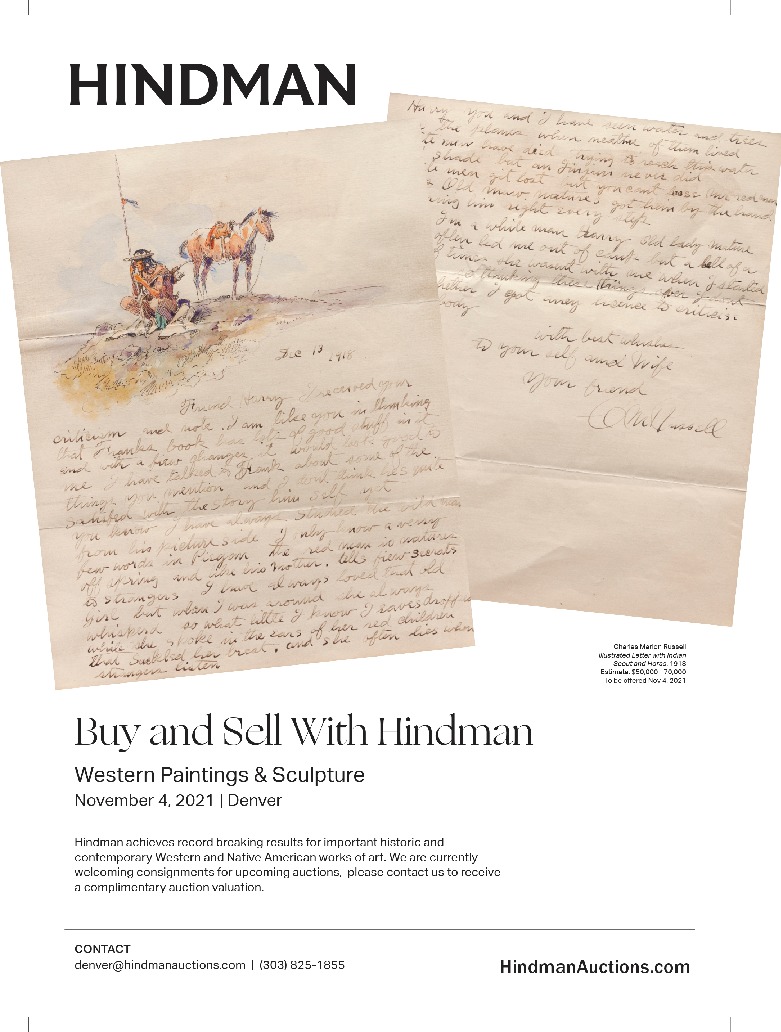 HINDMAN
Dec 13 1918
Friend Harry I received your
criticism and note. I am like you in thinking
that Franks book has lots of good stuff in it
and with a few changes it would look good to
me I have talked to Frank about some of the
things you mention and I dont think hes quite
satisfied with the story him self yet
you know I have always studied the wild man
from his picture side I only know a verry
few words in Piegan the red man is natures
off spring and like his mother. tells fiew secrets
to strangers I have always loved that old
girl but when I was around she always
whispered so what little I know I eavesdropped
while she spoke in the ears of her red children
that suckled her breast. and she often lies when
strangers listen
Harry you and I have seen water and trees
the plains when neather of them lived
men have died trying to reach this water
shade but an Injun never did
men get lost but you cant lose
Old natures got him by the hand
him right every step
I'm a white man Harry. Old lady nature
often led me out of camp but a hell of a
times she wasent with me when I started
thinking these things over I
I got any licence to criticise
with best wishes
to your self and Wife
your friend
CM Russell
Charles Marion Russell
Illustrated Letter with Indian
Scout and Horse, 1918
Estimate: $50,000 - 70,000
To be offered Nov 4, 2021
Buy and Sell With Hindman
Western Paintings & Sculpture
November 4, 2021 | Denver
Hindman achieves record breaking results for important historic and
contemporary Western and Native American works of art. We are currently
welcoming consignments for upcoming auctions, please contact us to receive
a complimentary auction valuation.
CONTACT
denver@hindmanauctions.com | (303) 825-1855
HindmanAuctions.com